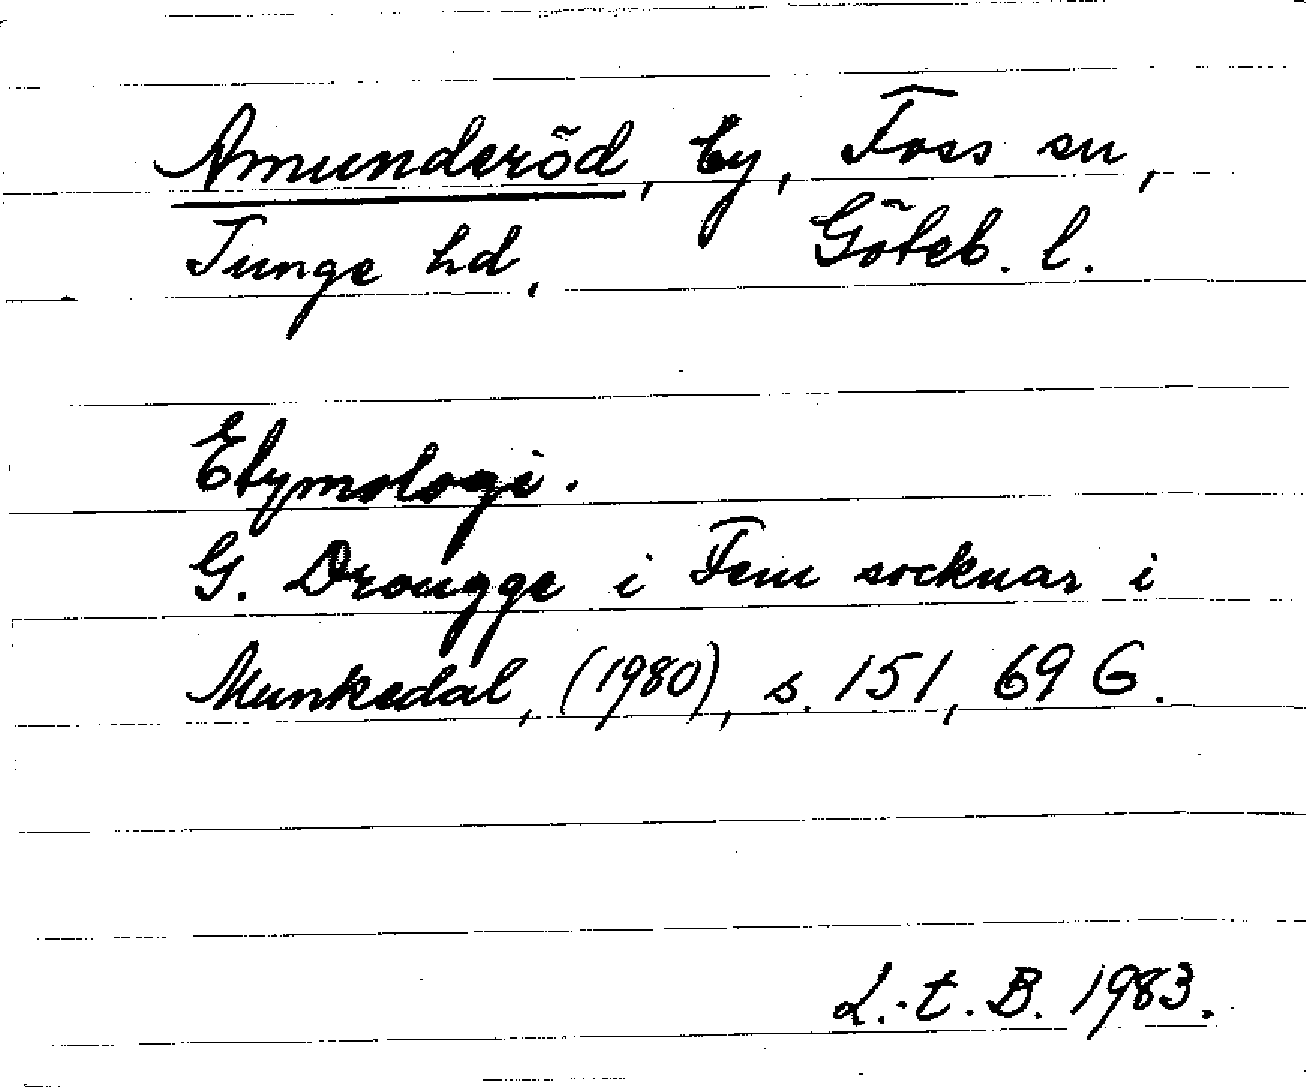 Amunderöd, by, Foss sn,
Tunge hd, Göteb. l.
Etymologi.
G. Drougge i Fem socknar i
Munkedal, (1980), s. 151, 69 G.
L.-t. B. 1983.